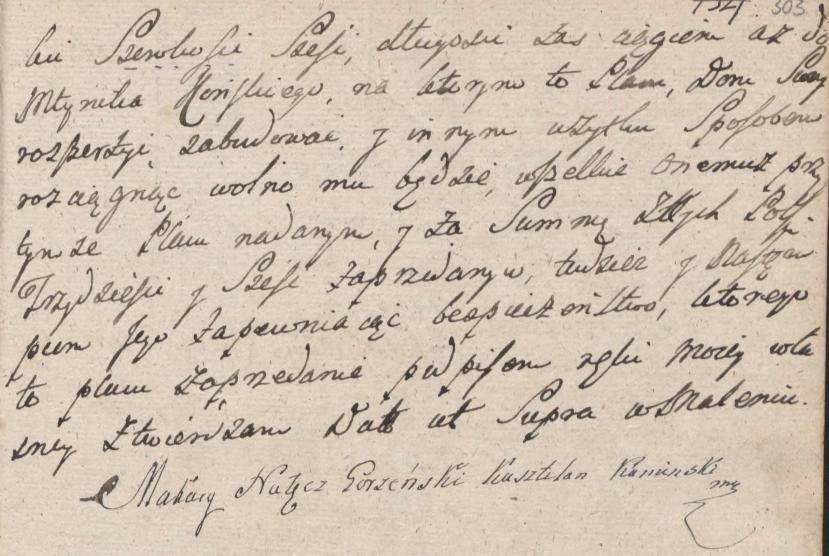 303
kci Szerokosci Szesć, długosci zas ciągiem az do
Młynika Konskiego, na ktorym to Placu, Dom
rozszerżyć, zabudować, y innym użytku Sposobem
rozciągnąc wolno mu będzie, wszelkie onemuż przy
tymze Placu nadanym, y za Summę Złłych Pols.
Trzydzieści y Sześć zaprzedanym, tudziesz y Następ
pcom Jego zapewniaiąć bespieczenstwo, ktorego
to placu zaprzedanie podpisem ręki Moiey wła
sney ztwierdzam Datt ut Supra w
Makary Nałęcz Gorzeński Kasztelan Kaminski
mp